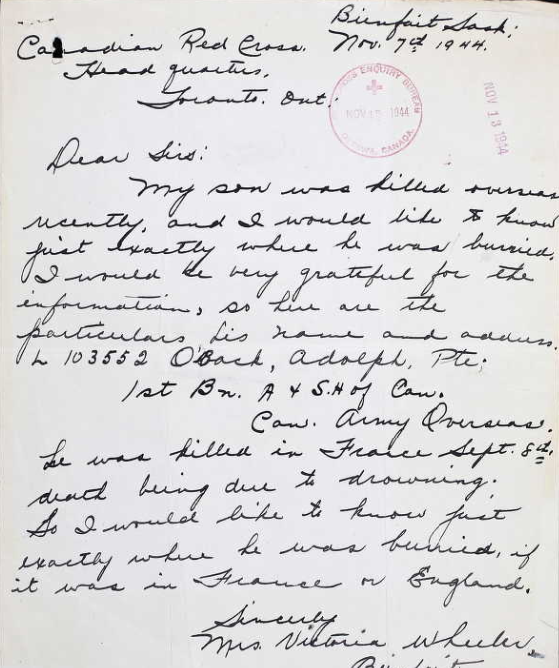 Bienfait Sask;
Canadian Red Cross. Nov. 7th 1944.
Head quarters,
Toronto. Ont.:
ENQUIRY BUREAU
NOV 13 1944
OTTAWA, CANADA.
NOV 13 1944
Dear Sirs:
My son was killed overseas
recently, and I would like to know
just exactly where he was burried.
I would be very grateful for the
information, so here are the
particulars his name and address.
L 103552 O'Back, Adolph, Pte;
1st Bn. A & S.H of Can.
Can. Army Overseas.
he was killed in France Sept. 8th.
death being due to drowning.
So I would like to know just
exactly where he was burried, if
it was in France or England.
Sincerly
Mrs. Victoria Wheeler.
Bienfait